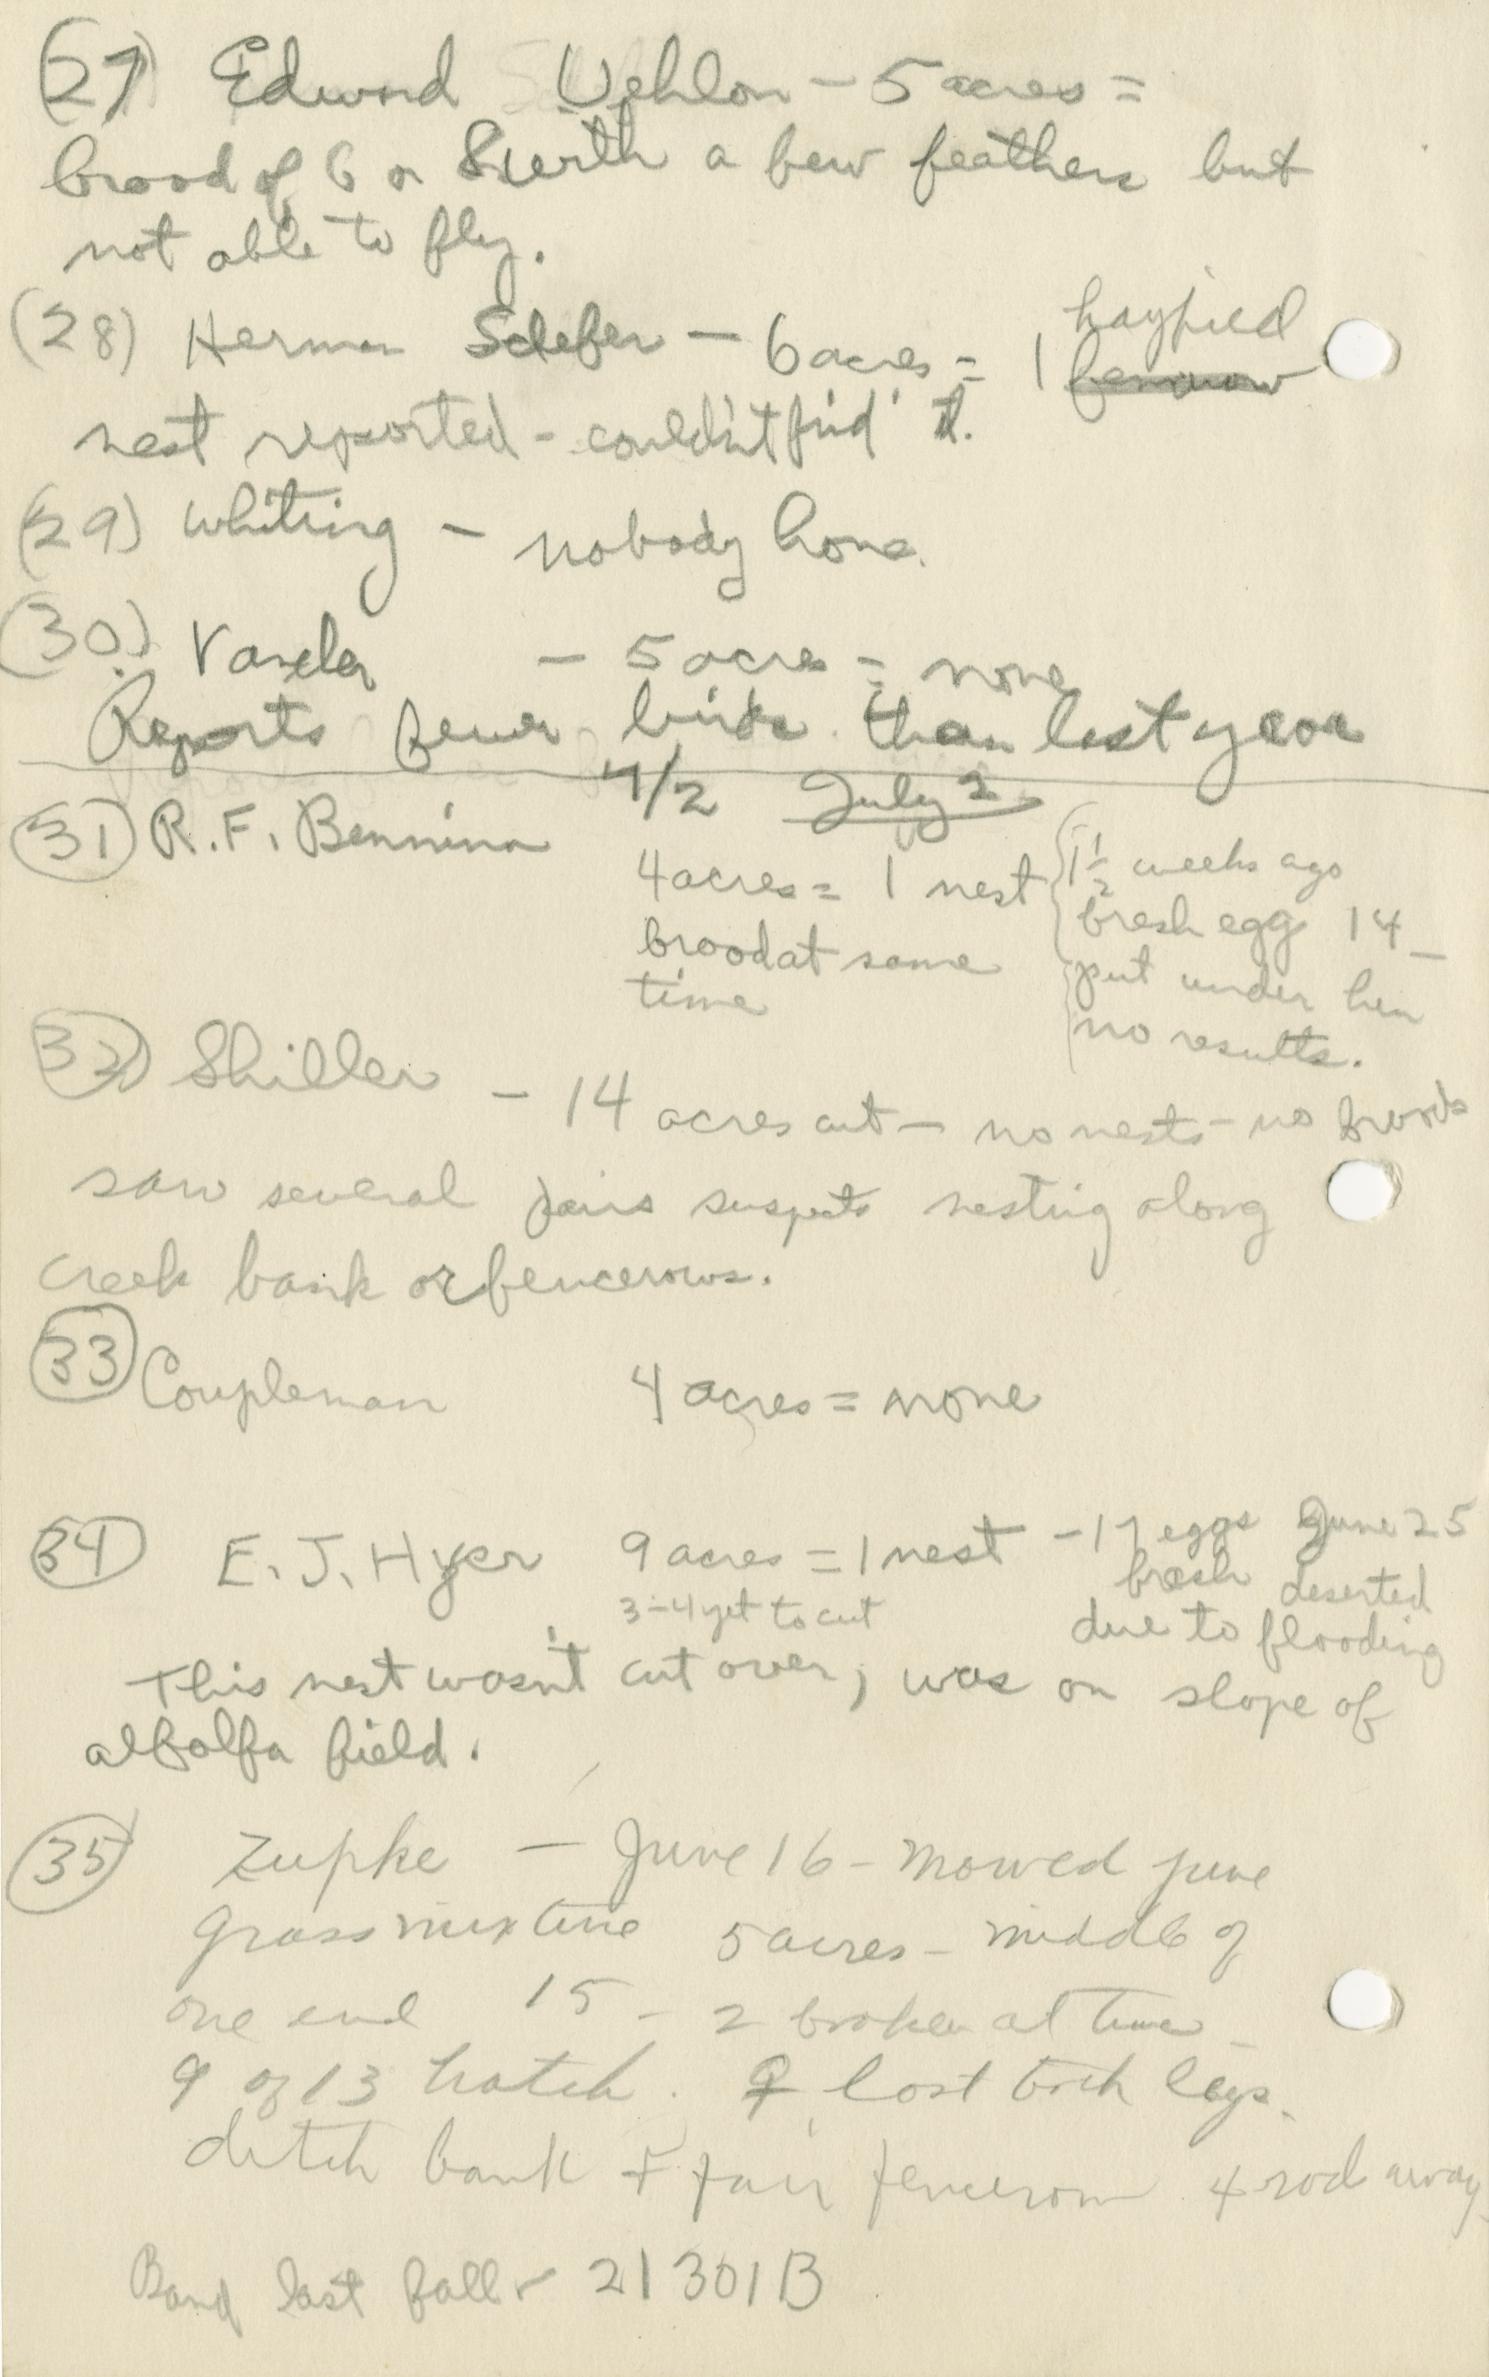 (27) Edward Uehlon - 5 acres =
brood of 6 or 8 with a few feathers but
not able to fly.
(28) Herman Schefer - 6 acres = 1 hayfield
nest reported - couldn't find it.
(29) Whiting - nobody home.
(30) Vaxela - 5 acres = none
Reports fewer birds than last year
7/2 July 2
(31) R.F. Bennina
4 acres = 1 nest
brood at same
time
1 1/2 weeks ago
fresh egg 14 -
put under hen
no results.
(32) Shiller - 14 acres cut - no nests - no broods
saw several pairs suspects nesting along
creek bank or fencerows.
(33) Coupleman 4 acres = none
(34) E. J. Hyer 9 acres = 1 nest - 17 eggs June 25
3-4 yet to cut
fresh deserted
due to flooding
This nest wasn't cut over; was on slope of
alfalfa field.
(35) Zupke - June 16 - mowed june
grass mixture 5 acres - middle of
one end 15 - 2 broken at time -
9 of 13 hatch. ♀ lost both legs.
ditch bank + fair fencerow 4 rod away
Band last fall - 21301B